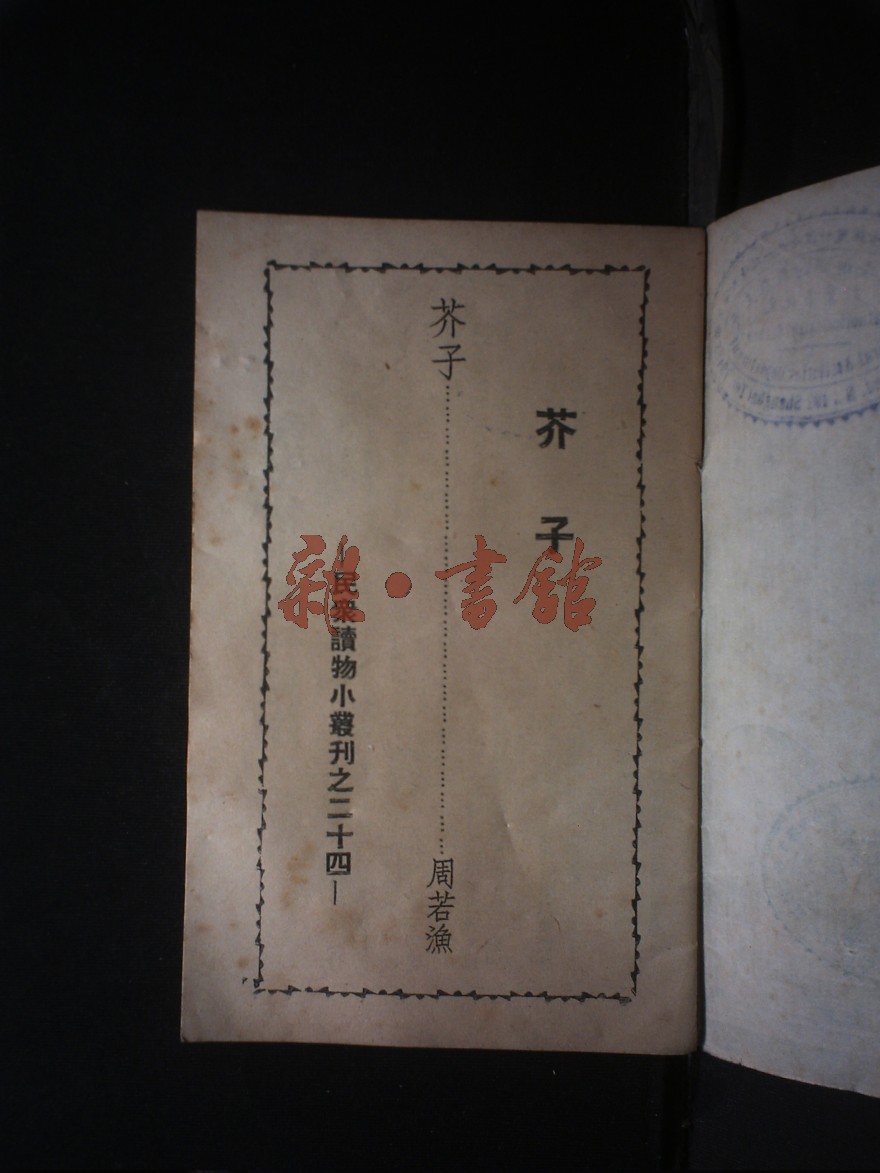 芥子
芥子……周若漁
—民衆讀物小叢刊之二十四—
雜·書館